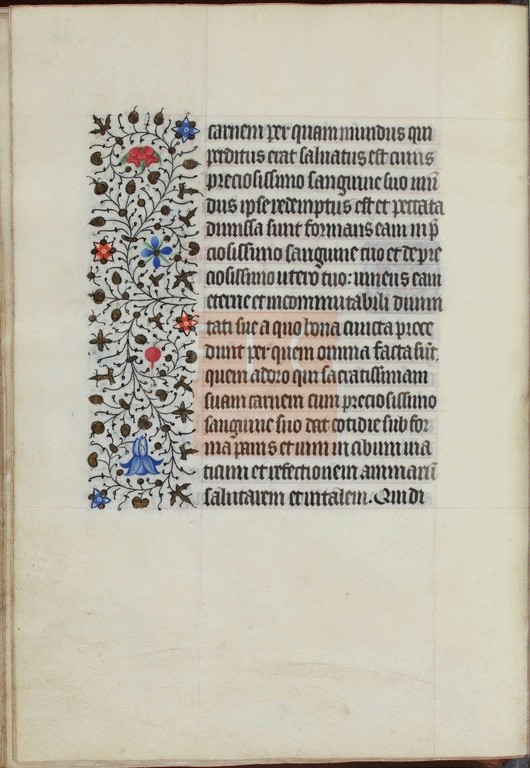 carnem per quam mundus qui
perditus erat saluatus est cuius
preciosissimo sanguine suo mũ
dus ipse redemptus est et peccata
dimissa sunt formans eam in p̃
ciosissimo sanguine tuo et de pre
ciosissimo utero tuo: uniens eam
eterne et incommutabili diuini
tati sue a quo bona cuncta proce
dunt per quem omnia facta sũt.
quem adoro qui sacratissimam
suam carnem cum preciosissimo
sanguine suo dat cotidie sub for
ma panis et uini in cibum uia
ticum et refectionem animarũ
salutarem et uitalem. Qui di